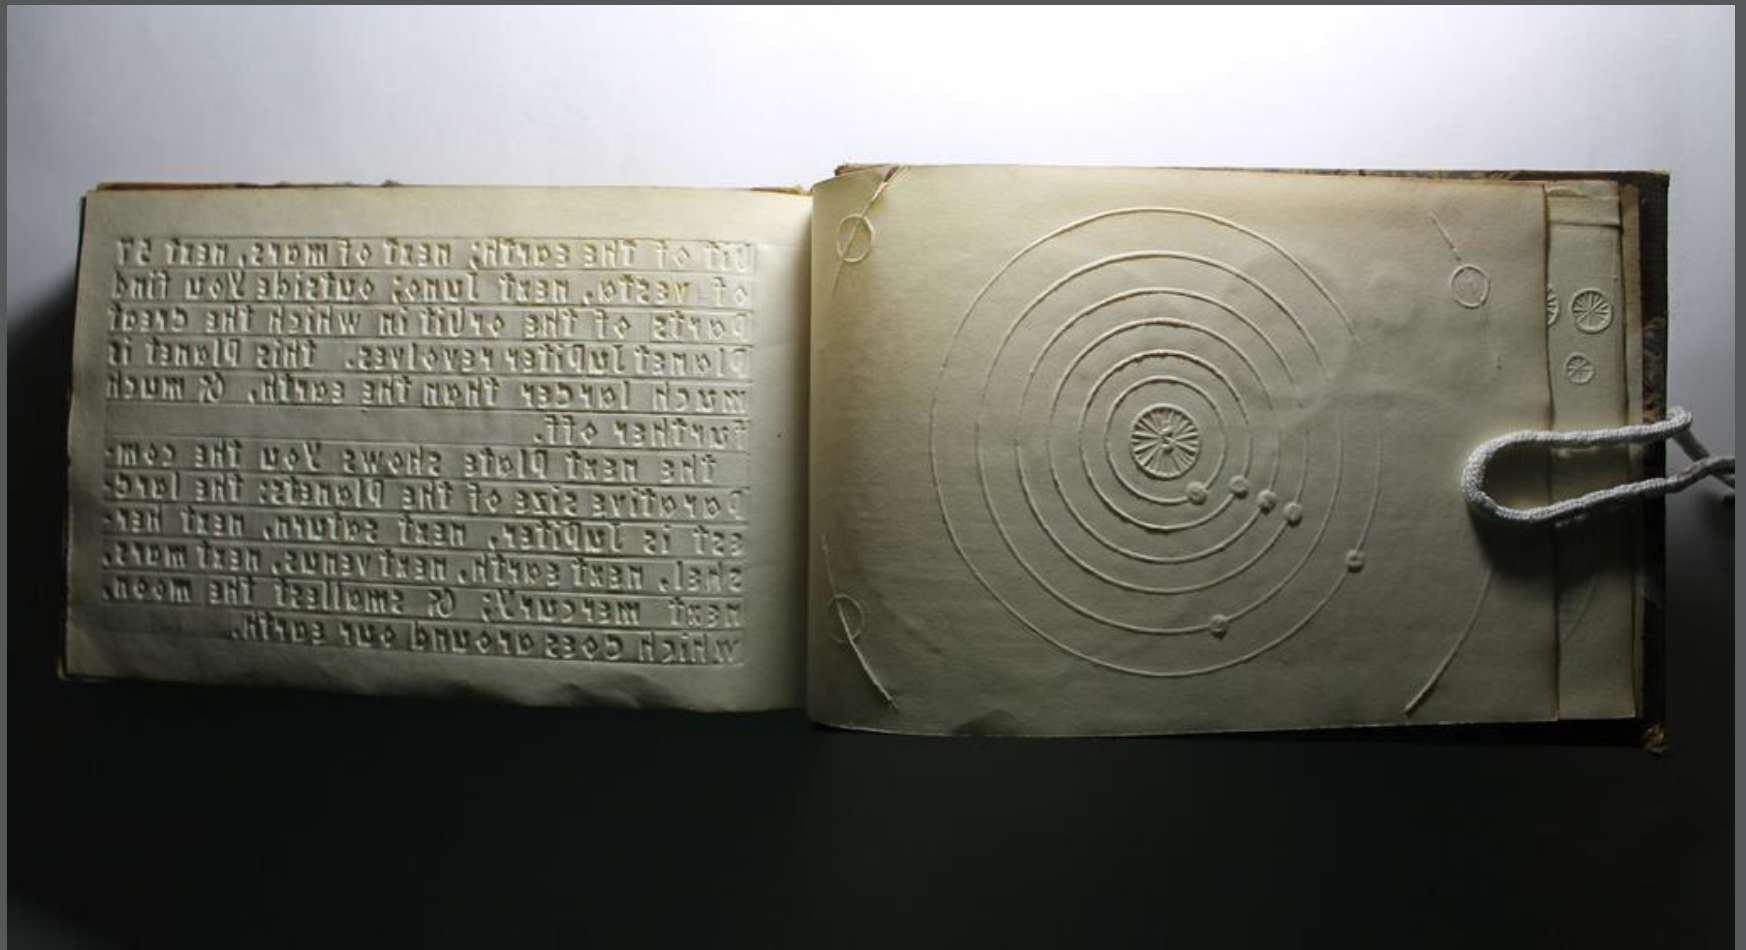 bit of the earth; next of mars, next
of vesta, next Juno; outside you find
parts of the orbit in which the great
planet Jupiter revolves. this planet is
much larger than the earth, & much
further off.
the next plate shows you the com-
parative size of the planets: the larg-
est is Jupiter, next saturn, next her-
shel, next earth, next venus, next mars,
next mercury; & smallest the moon,
which goes around our earth.